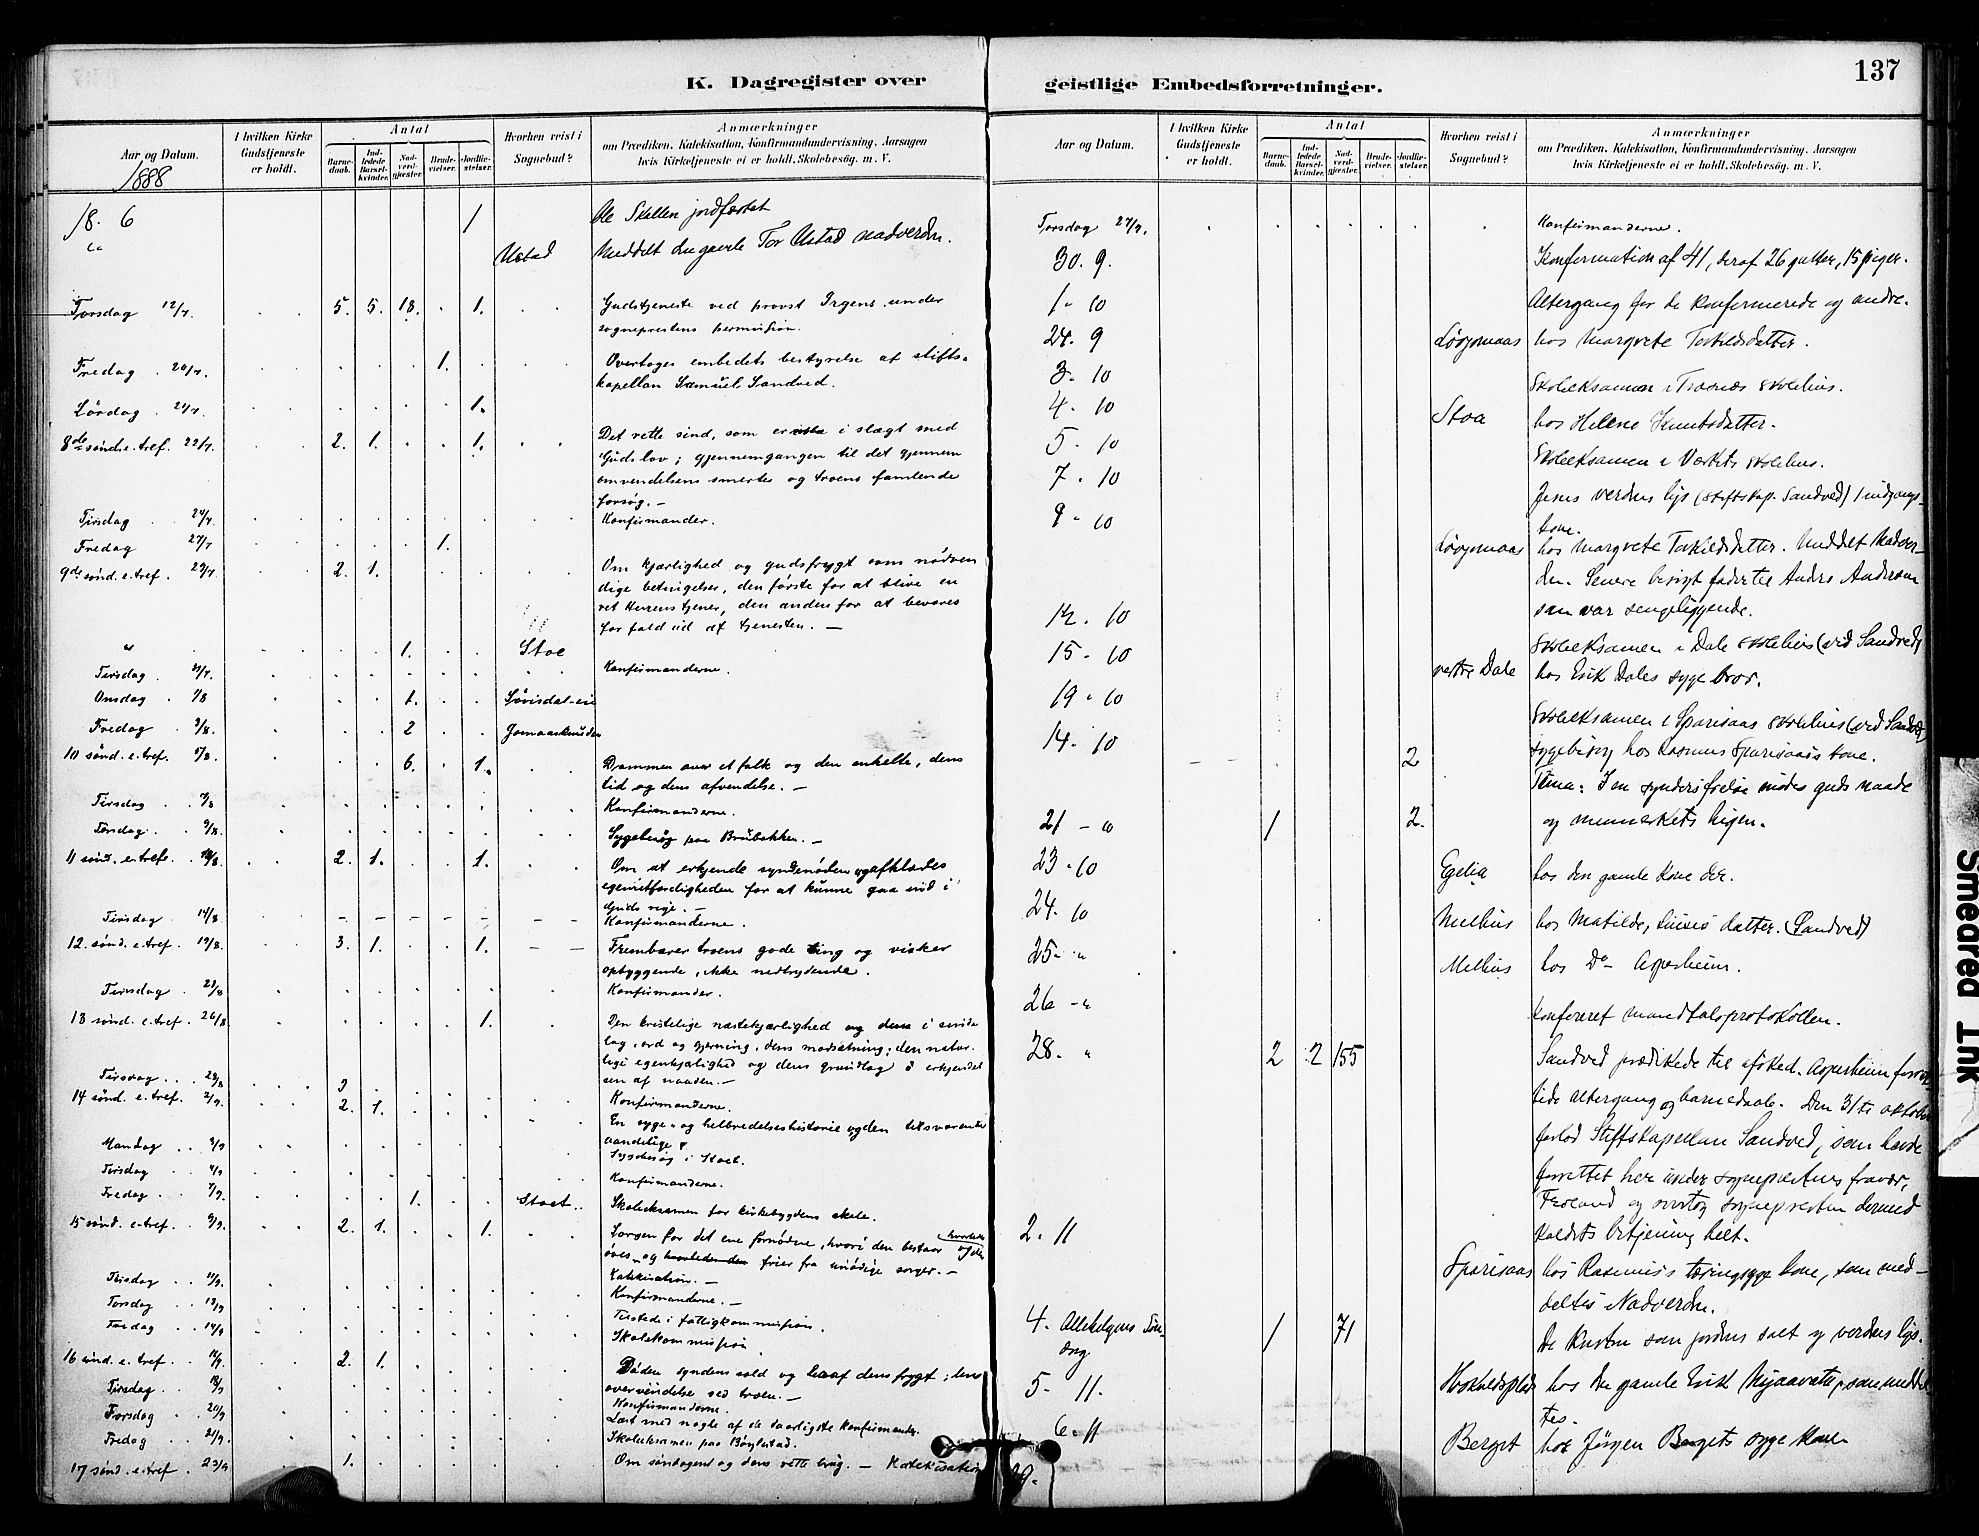 137
K. Dagregister over geistlige Embedsforretninger.
Aar og Datum.
1888
I hvilken Kirke Gudstjeneste er holdt.
Antal
Barnedaab.
Indledede Barselkvinder.
Nadverdgjæster.
Brudevielser.
Jordfæstelser.
Hvorhen reist i Sognebud?
Anmærkninger
om Prædiken, Katekisation, Konfirmandundervisning, Aarsagen
hvis Kirketjeneste ei er holdt, Skolebesøg. m. V.
18. 6 1 Ole Skellen jordfæstet
" Ustad Meddelt Tor Ustad nadverden.
Torsdag 12/7. 5. 5. 18. 1. Gudstjeneste ved provst Irgens under
sogneprestens permission.
Fredag 20/7. 1. Overtages embedets bestyrelse af stifts-
kapellan Samuel Sandved.
Lördag 21/7. 1.
8de sönd. e. tref. 22/7. 2. 1. 1. Det rette sind, som er i slægt med
Guds lov; gjennemgangen til det gjennem
omvendelsens smertes og troens famlende
forsøg. —
Tirsdag 24/7. Konfirmander.
Fredag 27/7 1.
9de sönd. e. tref. 29/7. 2. 1. Om kjærlighed og gudsfrygt som nødven
dige betingelser, den første for at blive en
ret Herrens tjener, den anden for at bevares
for fald ud af tjenesten. —
" 1. Stoe
Tirsdag 31/7. Konfirmanderne.
Onsdag 1/8 1.
Fredag 3/8. 2
10 sönd. e. tref. 5/8. 6. 1. Dommen over et folk og den enkelte, dens
tid og dens afvendelse. —
Tirsdag 7/8 Konfirmanderne.
Torsdag 9/8. Sygebesøg paa Brubakken. —
11 sönd. e. tref. 12/8. 2. 1. 1. Om at erkjende syndenøden og afklædes
egenretfærdigheden for at kunne gaa ind i
Guds rige. —
Tirsdag 14/8. Konfirmanderne.
12. sönd. e. tref. 19/8. 3. 1. 1. Frembærer troens gode ting og virker
opbyggende, ikke nedbrydende.
Tirsdag 21/8 Konfirmander.
13 sönd. e. tref. 26/8 1. Den kristelige næstekjærlighed og dens i sinde
lag, ord og gjerning, dens modsætning; den natur
lige egenkjærlighed og dens grundlag i erkjendel
sen af naaden. —
Tirsdag 28/8 Konfirmanderne.
14 sönd. e. tref. 2/9. 2. 1. En syge- og helbredelseshistorie og den tilsvarende
aandelige
Mandag 3/9 Sygebesøg i Stoet.
Tirsdag 4/9 Konfirmanderne.
Fredag 7/9. 1. Stoet. Skoleeksamen for kirkebygdens skole.
15 sönd. e. tref. 9/9. 2. 1. 1. Sorgen for det ene fornødne, hvori den bestaar hvorledes
øves og hvorledes den frier fra unødige sorger. —
Katekisation. —
Tirsdag 11/9. Konfirmanderne. —
Torsdag 13/9 Tilstede i fattigkommission.
Fredag 14/9 Skolekommission.
16 sönd. e. tref. 16/9. 2. 1. Døden syndens sold og dens frygt; dens
overvindelse ved troen. —
Tirsdag 18/9 Konfirmanderne.
Torsdag 20/9 Læst med nogle af de daarligste konfirmander.
Fredag 21/9. Skoleeksamen paa Bøylestad.
17 sönd. e. tref. 23/9 1. Om søndagen og dens rette brug. — Katekisation
Aar og Datum.
I hvilken Kirke Gudstjeneste er holdt.
Antal
Barnedaab.
Indledede Barselkvinder.
Nadverdgjæster.
Brudevielser.
Jordfæstelser.
Hvorhen reist i Sognebud?
Anmærkninger
om Prædiken, Katekisation, Konfirmandundervisning, Aarsagen
hvis Kirketjeneste ei er holdt, Skolebesøg. m. V.
Torsdag 27/9. Konfirmanderne.
30. 9. Konfirmation af 41, deraf 26 gutter, 15 piger.
1. 10 Altergang for de konfirmerede og andre.
24. 9 hos Margrete Terkildsdatter.
3. 10 Skoleeksamen i skolehus.
4. 10 Stoa hos Helene Knutsdatter.
5. 10 Skoleeksamen i Værkets skolehus.
7. 10 Jesus verdens lys (Stiftskap. Sandved) 1 indgangs-
kone.
9. 10 hos Margrete Terkildsdatter. Meddelt Nadver-
den. Senere besøgt Anders Andersen
som var sengeliggende.
12. 10 Skoleeksamen i Dale skolehus (ved Sandved)
15. 10 vestre Dale hos Erik Dales syge bror.
19. 10 Skoleeksamen i Sparsaas skolehus (ved Sandved)
14. 10 2 Sygebesøg hos Rasmus Sparsaas's kone.
Tema: I en synders frelse mødes guds naade
21 - 10 1 2. og menneskets higen.
23. 10 Egelia hos den gamle kone der.
24. 10 Melhus hos Matilde, datter. (Sandved)
25. " Melhus hos Do Asperheim.
26 - " Konfereret mandtalsprotokollen.
28. " 2 2 155 Sandved prædikede til afsked. Asperheim forret
tede altergang og barnedaab. Den 31te oktober
forlod Stiftskapellan Sandved, som havde
forrettet her under sogneprestens fravær,
Froland og overtog sognepresten dermed
2. 11 kaldets betjening helt.
Sparsaas hos Rasmus's tæringsyge kone, som med-
deltes Nadverden.
4. Allehelgens Søn-
dag 1 71 De kristne som jordens salt og verdens lys.
5. 11. hos den gamle Erik som meddel
tes.
6. 11 Berget hos Jørgen Bergets syge kone
9.
Smeared Ink